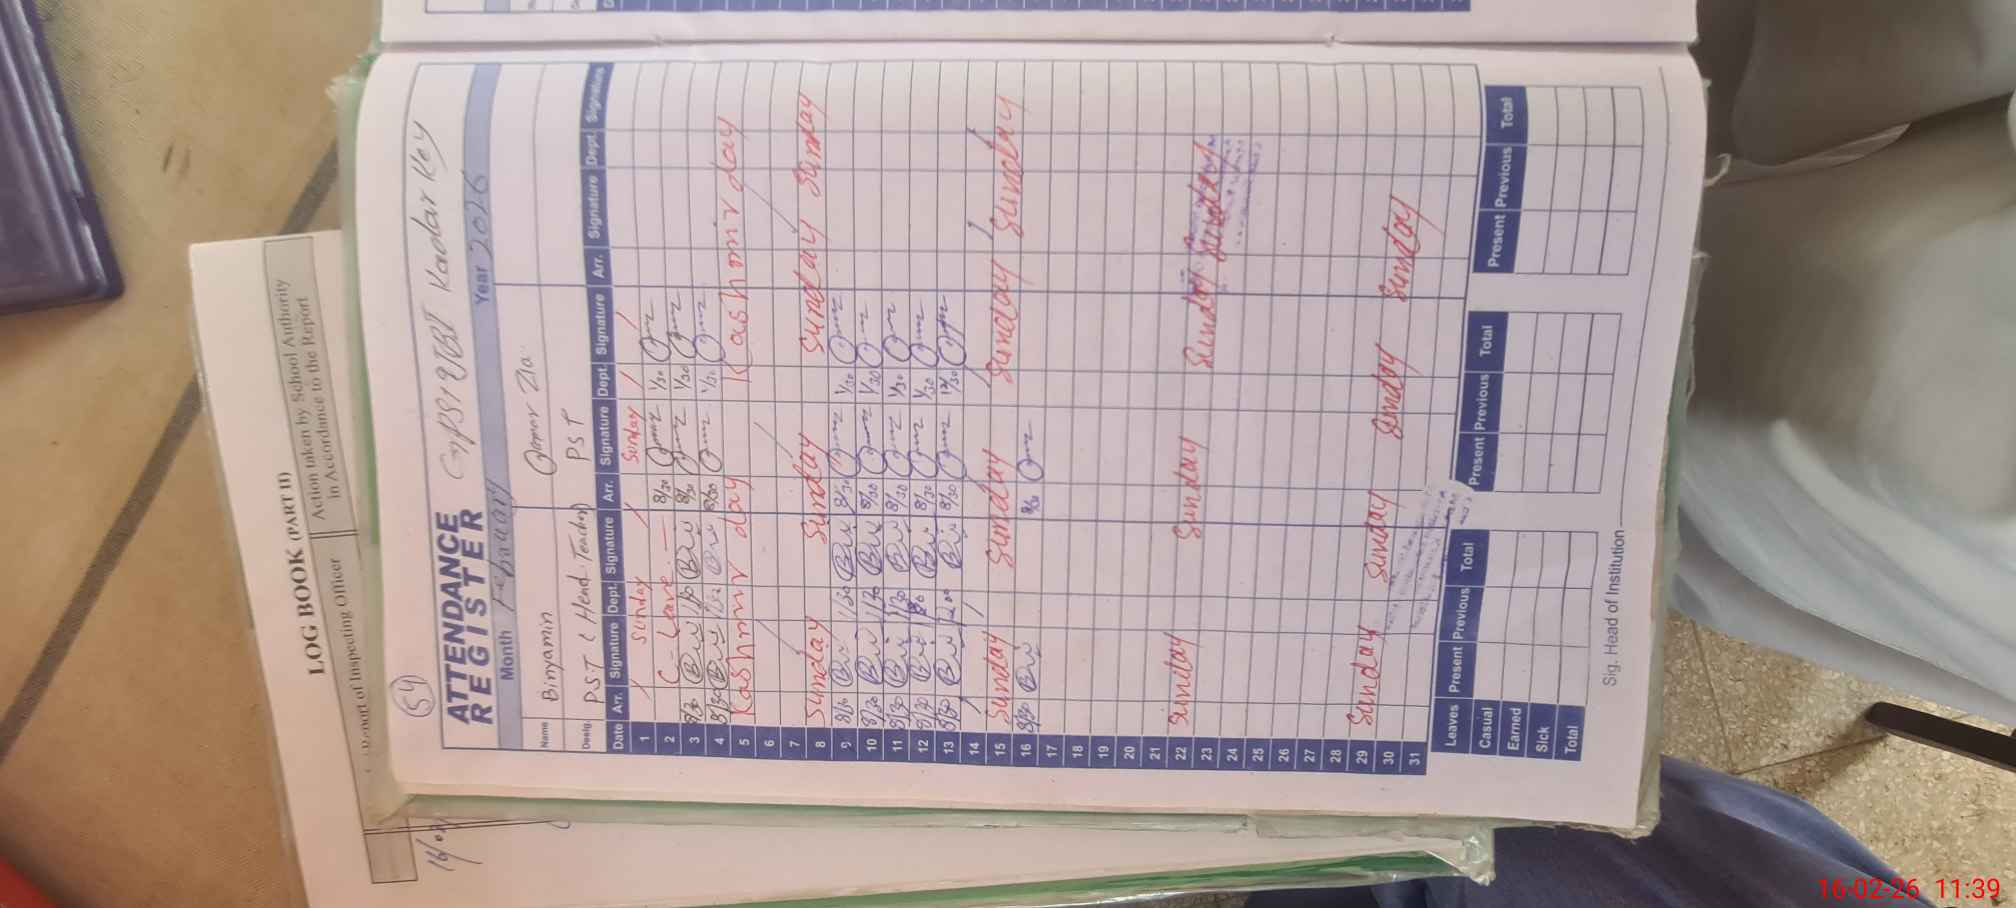 LOG BOOK (PART II)
Report of Inspecting Officer
Action taken by School Authority
in Accordance to the Report
16/02/
54
ATTENDANCE
REGISTER
Kadar Key
Month
Year 2026
Name Binyamin Qamar Zia
Desig. PST (Head Teacher) PST
Date Arr. Signature Dept. Signature Arr. Signature Dept. Signature Arr. Signature Dept. Signations
1 Sunday Sunday
2 C-Leave 8/30 1/30
3 8/30 1/30 8/30 1/30
4 8/30 1/30 8/30 1/30
5 Kashmir day Kashmir day
6
7
8 Sunday Sunday Sunday Sunday
9 8/30 1/30 8/30 1/30
10 8/30 1/30 8/30 1/30
11 8/30 1/30 8/30 1/30
12 8/30 1/30 8/30 1/30
13 8/30 8/30
14
15 Sunday Sunday Sunday Sunday
16 8/30 8/30
17
18
19
20
21
22 Sunday Sunday Sunday Sunday
23
24
25
26
27
28
29 Sunday Sunday Sunday Sunday
30
31
Leaves Present Previous Total Present Previous Total Present Previous Total
Casual
Earned
Sick
Total
Sig. Head of Institution
16-02-26 11:39